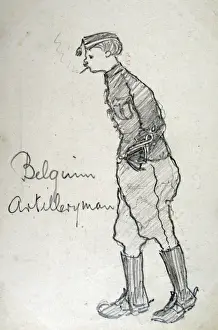 Belgium
Artilleryman